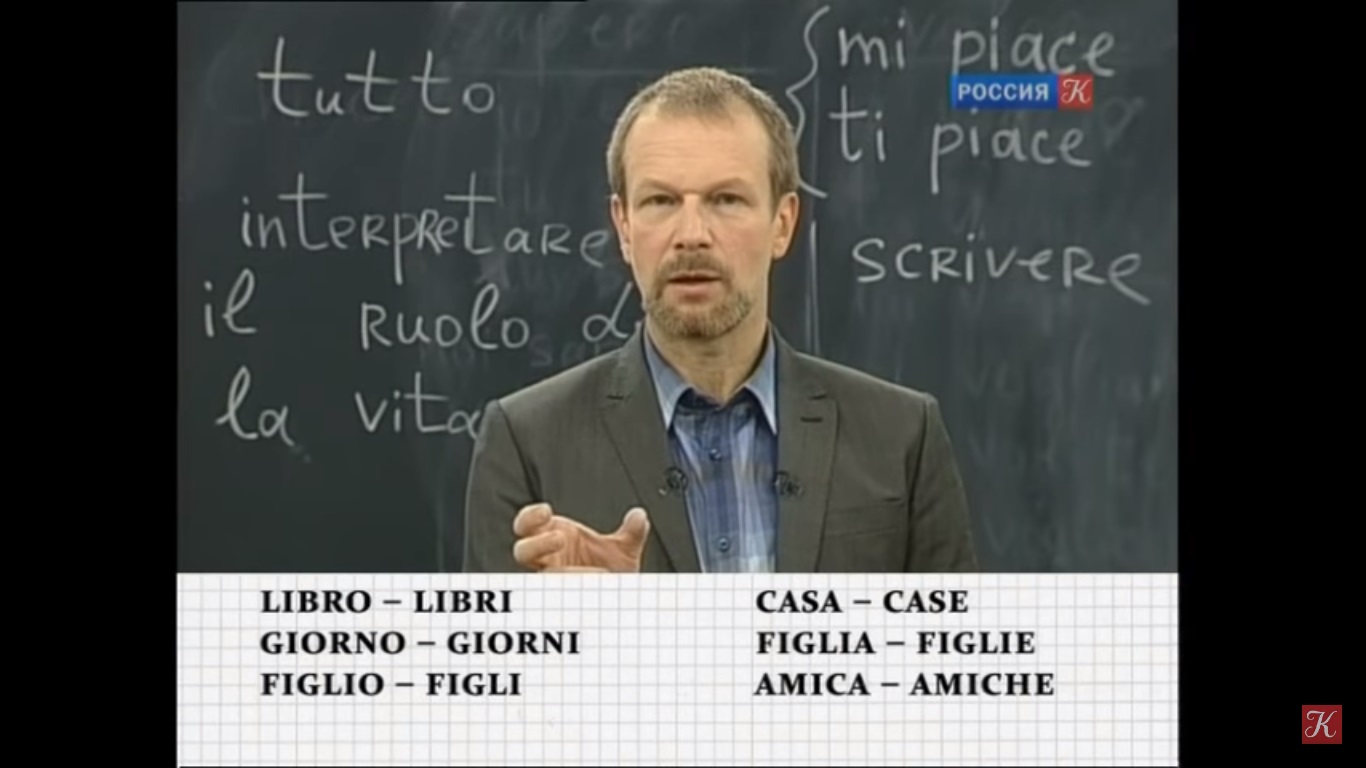 tutto
interpretare
il ruolo
la vita
mi piace
ti piace
scrivere
РОССИЯ К
LIBRO – LIBRI
GIORNO – GIORNI
FIGLIO – FIGLI
CASA – CASE
FIGLIA – FIGLIE
AMICA – AMICHE
К